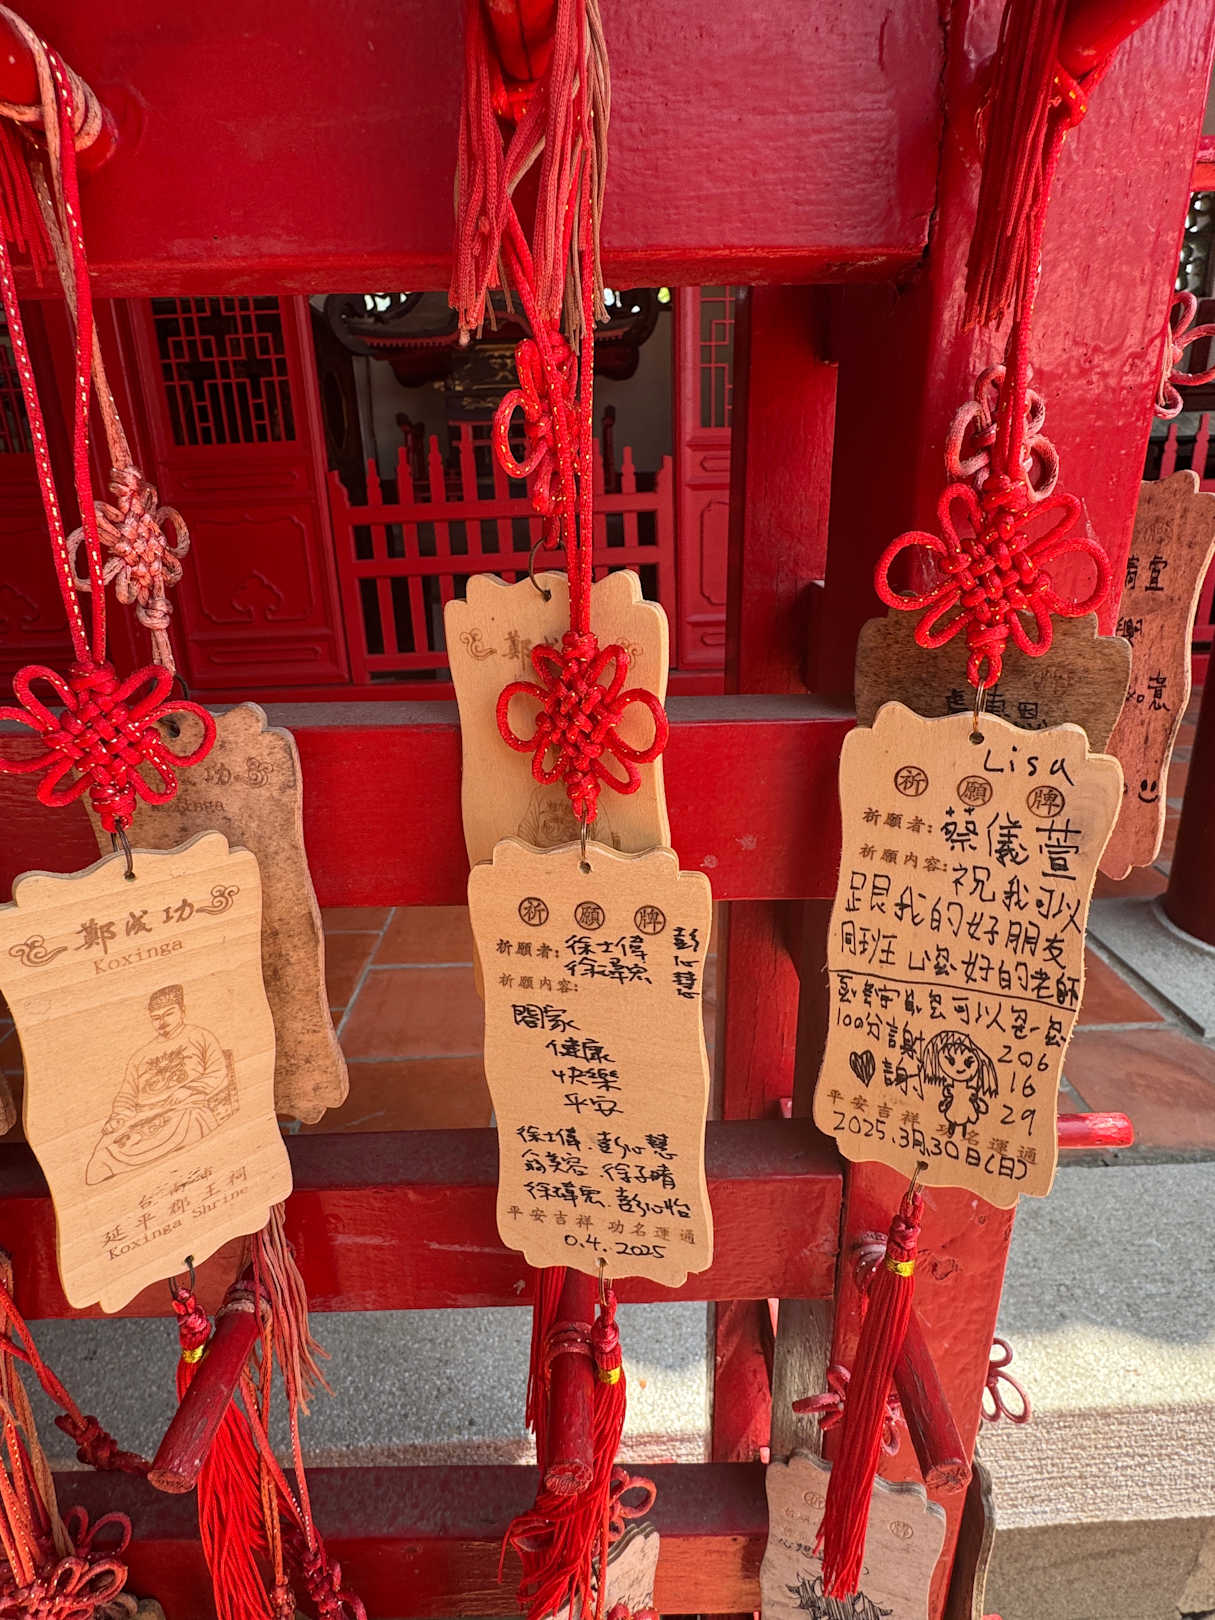 鄭成功
Koxinga
台灣
延平郡王祠
Koxinga Shrine
鄭成
祈願牌
祈願者:徐士偉
彭心慧
祈願內容:
闔家
健康
快樂
平安
徐士偉.彭心慧
翁美容.徐子晴
徐瑋宏.彭心怡
平安吉祥 功名運通
0.4.2025
Lisa
祈願牌
祈願者:蔡儀萱
祈願內容:祝我可以
跟我的好朋友
同班王 好的老師
可以
100分謝
謝
206
16
29
平安吉祥 功名運通
2025.3月30日(日)
宜
意